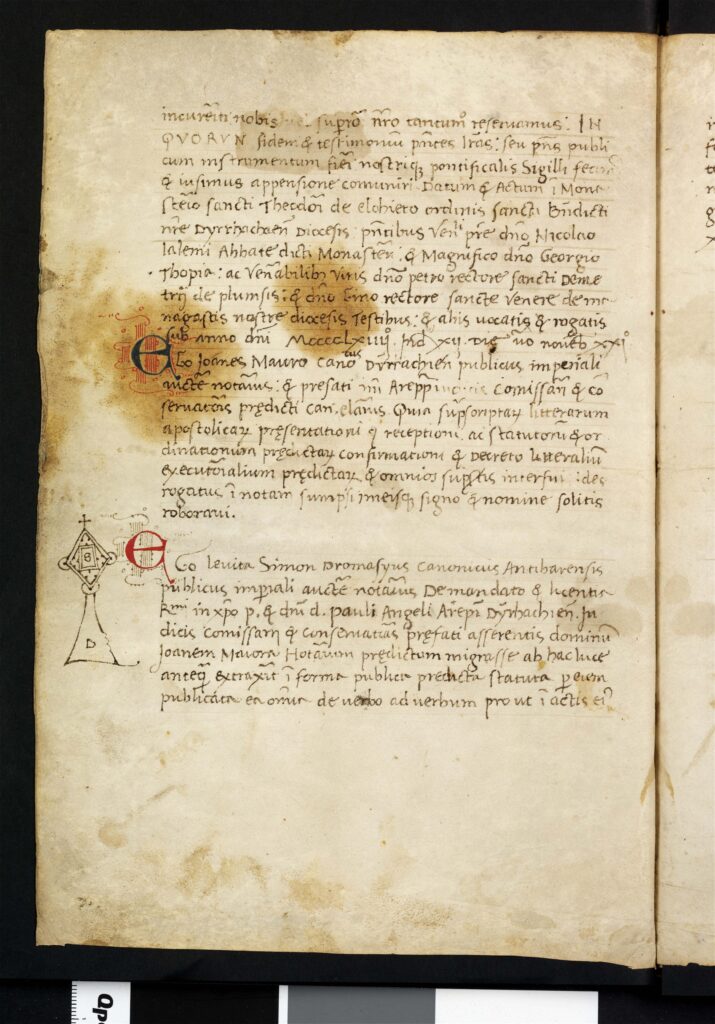 incurẽti nobis supio nr̃o tantum reseruamus: IN
QVORVN fidem & testimoniũ pñtes lr̃as: seu pñs publi
cum instrumentum fieri nostriq; pontificalis Sigilli fecim
& iusimus appensione comuniri. Datum & Actum ĩ Mona
stẽio sancti Theodoi de elchieto ordinis sancti Bñdicti
nr̃e Dyrrhachieñ Diocesis: pñtibus Veñ pr̃e dño Nicolao
lalemi Abbate dicti Monasteñ: & Magnifico dño Georgio
Thopia: ac Veñabilibz Viris dño petro rectore sancti Deme
trij de plumsis: & dño Gino rectore sancte Venere de m
nagastis nostre diocesis Testibus: & alijs uocatis & rogatis
sub anno dñi MCCCCLXIIIJº Ind XIJ. Die uo noueb XXIº
EGo Ioanes Mauro Canocus Dyrrachieñ publicus imperiali
aucte notarius: & prefati Areppi iudicis Comissarij & co
seruatoris prędicti can elarius. Quia supscriptarz litterarum
apostolicarz pręsentationi & receptioni. ac statutorũ & or
dinationum prędictarz confirmationi & Decreto litteraliũ
executorialium prędictarz & omnibs supstis interfui: ideo
rogatus ĩ notam sumpsi meisq; signo & nomine solitis
roboraui.
EGo leuita Simon Dromasyus canonicus Antibarensis
publicus imperiali aucte notarius De mandato & licentia
Rmi in xpo p. & dñi d. Pauli Angeli Arepi Dyrrhachieñ. Iu
dicis Comissarij & conseruatoris pręfati asserentis dominũ
Ioanem Maurora Notarium prędictum migrasse ab hac luce
anteq̃ extraxit ĩ forma publica predicta statuta p eum
publicata ea omia de uerbo ad uerbum prout ĩ actis ei
S
D